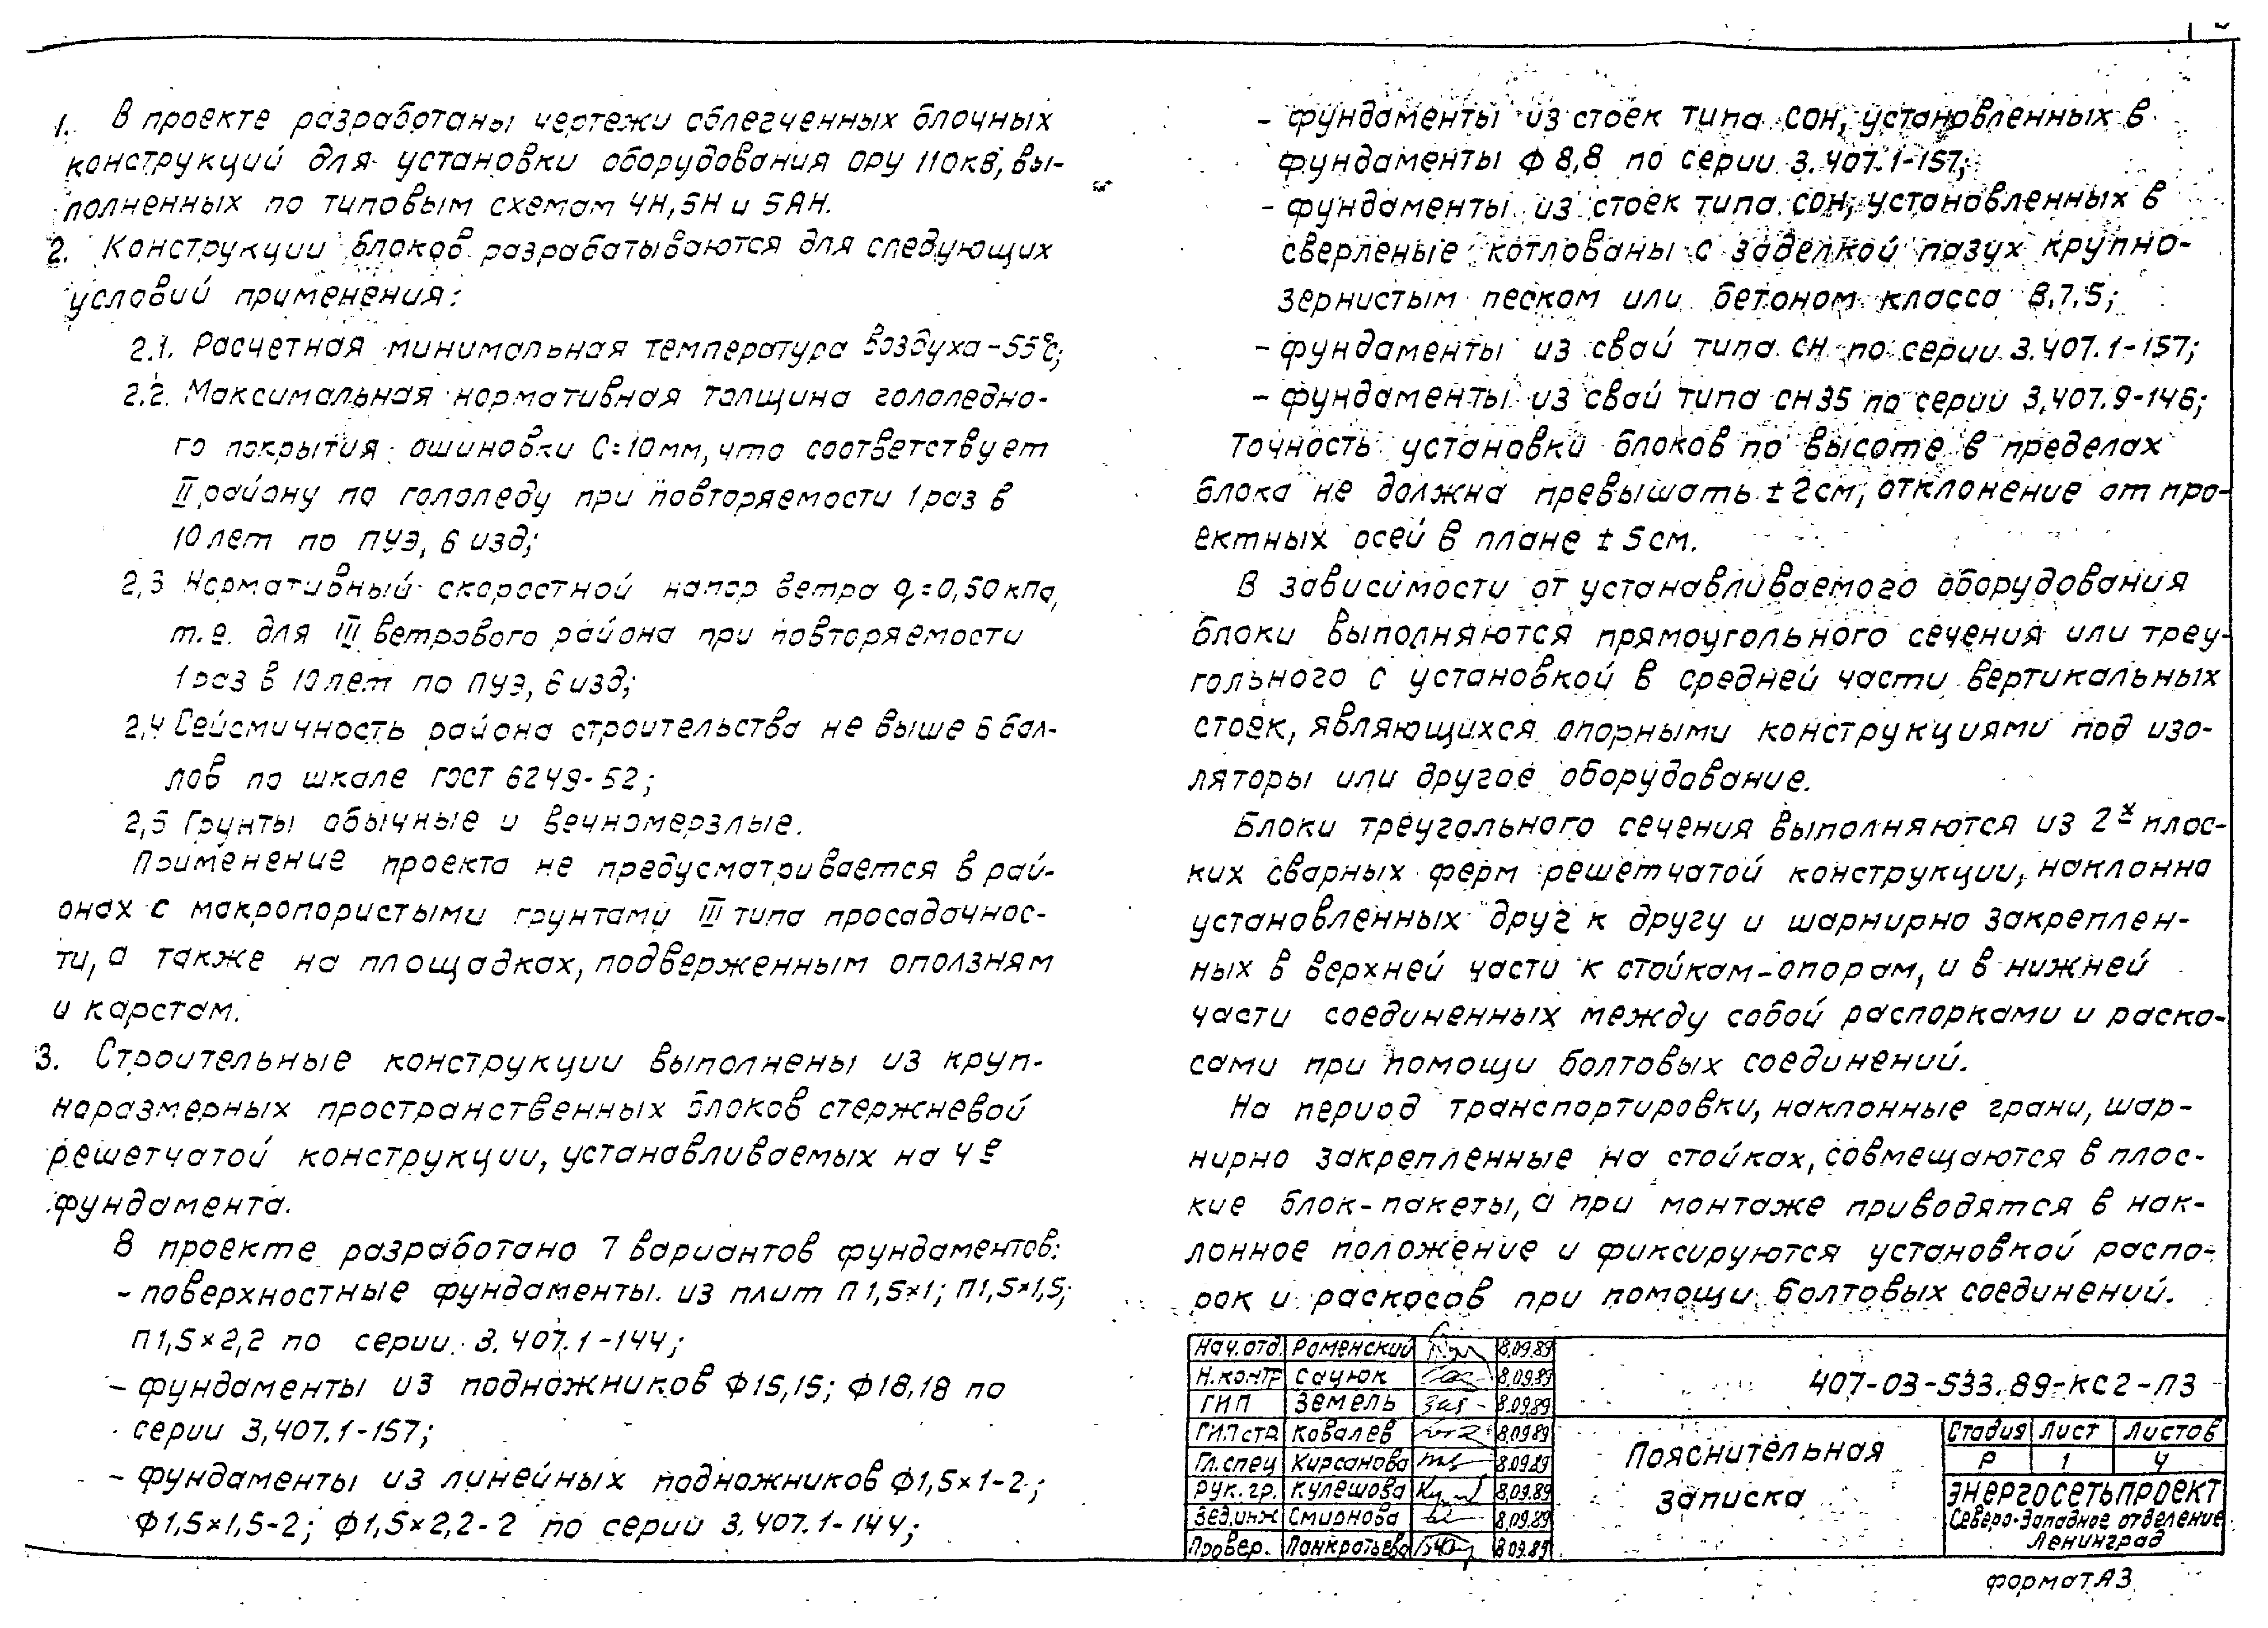 1. В проекте разработаны чертежи облегченных блочных
конструкций для установки оборудования ОРУ 110кВ, вы-
полненных по типовым схемам 4Н, 5Н и 5АН.
2. Конструкции блоков разрабатываются для следующих
условий применения:
2.1. Расчетная минимальная температура воздуха -55°С;
2.2. Максимальная нормативная толщина гололедно-
го покрытия ошиновки С=10мм, что соответствует
II району по гололеду при повторяемости 1 раз в
10 лет по ПУЭ, 6 изд;
2,3 Нормативный скоростной напор ветра q=0,50 кПа,
т.е. для III ветрового района при повторяемости
1 раз в 10 лет по ПУЭ, 6 изд;
2,4 Сейсмичность района строительства не выше 6 бал-
лов по шкале ГОСТ 6249-52;
2,5 Грунты обычные и вечномерзлые.
Применение проекта не предусматривается в рай-
онах с макропористыми грунтами III типа просадочнос-
ти, а также на площадках, подверженным оползням
и карстам.
3. Строительные конструкции выполнены из круп-
норазмерных пространственных блоков стержневой
решетчатой конструкции, устанавливаемых на 4е
фундамента.
В проекте разработано 7 вариантов фундаментов:
- поверхностные фундаменты из плит П1,5×1; П1,5×1,5;
П1,5×2,2 по серии 3.407.1-144;
- фундаменты из подножников Ф15,15; Ф18,18 по
серии 3,407.1-157;
- фундаменты из линейных подножников Ф1,5×1-2;
Ф1,5×1,5-2; Ф1,5×2,2-2 по серии 3.407.1-144;
- фундаменты из стоек типа СОН, установленных в
фундаменты Ф 8,8 по серии 3.407.1-157;
- фундаменты из стоек типа СОН, установленных в
сверленые котлованы с заделкой пазух крупно-
зернистым песком или бетоном класса В,7,5;
- фундаменты из свай типа СН по серии 3.407.1-157;
- фундаменты из свай типа СН35 по серии 3,407.9-146;
Точность установки блоков по высоте в пределах
блока не должна превышать ±2см, отклонение от про-
ектных осей в плане ±5см.
В зависимости от устанавливаемого оборудования
блоки выполняются прямоугольного сечения или треу-
гольного с установкой в средней части вертикальных
стоек, являющихся опорными конструкциями под изо-
ляторы или другое оборудование.
Блоки треугольного сечения выполняются из 2х плос-
ких сварных ферм решетчатой конструкции, наклонна
установленных друг к другу и шарнирно закреплен-
ных в верхней части к стойкам-опорам, и в нижней
части соединенных между собой распорками и раско-
сами при помощи болтовых соединений.
На период транспортировки, наклонные грани, шар-
нирно закрепленные на стойках, совмещаются в плос-
кие блок-пакеты, а при монтаже приводятся в нак-
лонное положение и фиксируются установкой распо-
рок и раскосов при помощи болтовых соединений.
Нач.отд. Роменский 8.09.89
Н.контр Сацюк 8.09.89
ГИП Земель 8.09.89
ГИПстр Ковалев 8.09.89
Гл.спец Кирсанова 8.09.89
Рук.гр. Кулешова 8.09.89
Вед.инж Смирнова 8.09.89
Провер. Панкратьева 8.09.89
407-03-533.89-КС2-ПЗ
Пояснительная
записка
Стадия Лист Листов
Р 1 4
Энергосетьпроект
Северо-Западное отделение
Ленинград
формат А3